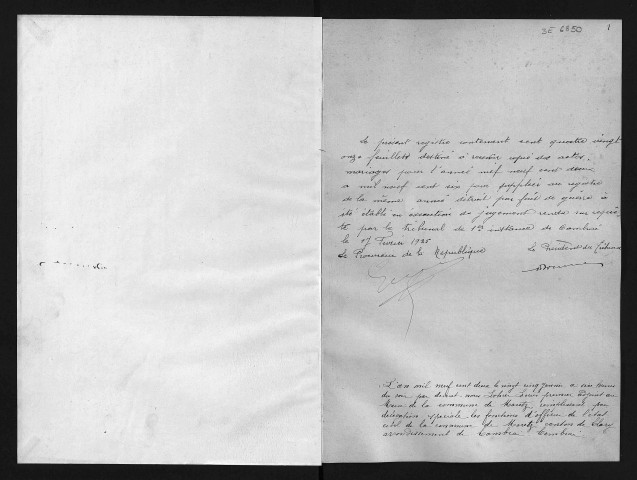 3E 6850
1
Le présent registre contenant cent quatre vingt
onze feuillets destiné à recevoir copie des actes
mariages pour l'année mil neuf cent deux
a mil neuf cent six pour suppléer au registre
de la même année détruit par fait de guerre a
été établi en exécution du jugement rendu sur requê
te par le tribunal de 1re instance de Cambrai
le Février 1925
Le Procureur de la République Le Président du Tribunal
L'an mil neuf cent deux le vingt cinq janvier a six heures
du soir par devant nous Louis premier adjoint au
Maire de la commune de Maretz remplissant par
délégation spéciale les fonctions d'officier de l'état
civil de la commune de Maretz canton de Clary
arrondissement de Cambrai